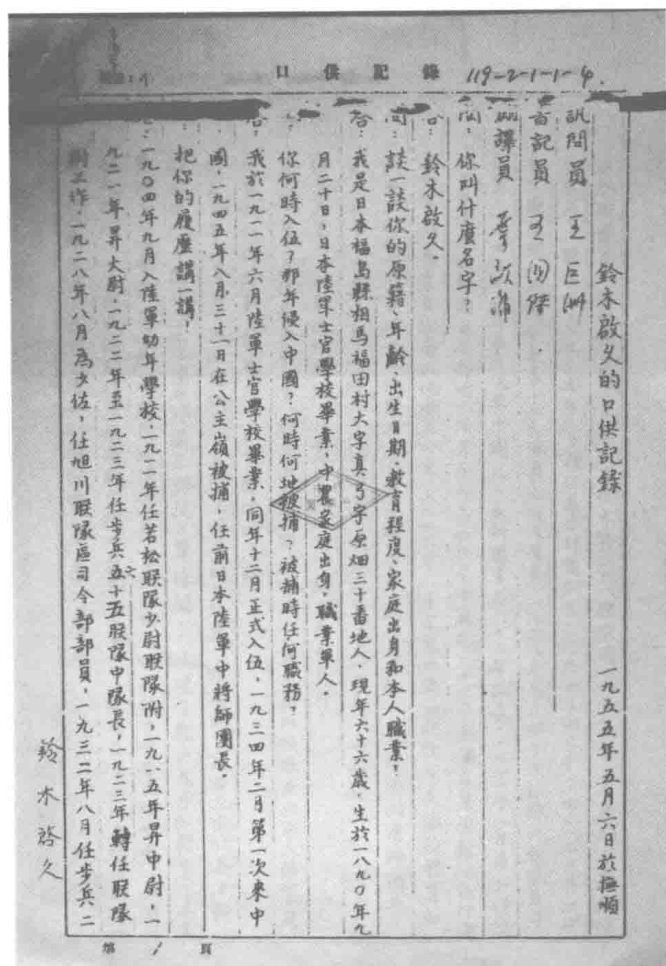 口供記錄
119-2-1-1-4.
鈴木啟久的口供記錄
一九五五年五月六日於撫順
訊問員 王巨洲
書記員
翻譯員
問：你叫什麼名字？
答：鈴木啟久。
問：談一談你的原籍、年齡、出生日期、教育程度、家庭出身和本人職業？
答：我是日本福島縣相馬福田村大字真弓字原畑三十番地人，現年六十六歲，生於一八九〇年九
月二十日，日本陸軍士官學校畢業，中農家庭出身，職業軍人。
：你何時入伍？那年侵入中國？何時何地被捕？被捕時任何職務？
答：我於一九一一年六月陸軍士官學校畢業，同年十二月正式入伍，一九三四年二月第一次來中
國，一九四五年八月三十一日在公主嶺被捕，任前日本陸軍中將師團長。
：把你的履歷講一講？
：一九〇四年九月入陸軍幼年學校，一九一一年任若松联隊少尉联隊附，一九一五年昇中尉，一
九二一年昇大尉，一九二二年至一九二三年任步兵六十五联隊中隊長，一九二三年轉任联隊
附工作，一九二八年八月為少佐，任旭川联隊區司令部部員，一九三二年八月任步兵二
鈴木啓久
第 1 頁